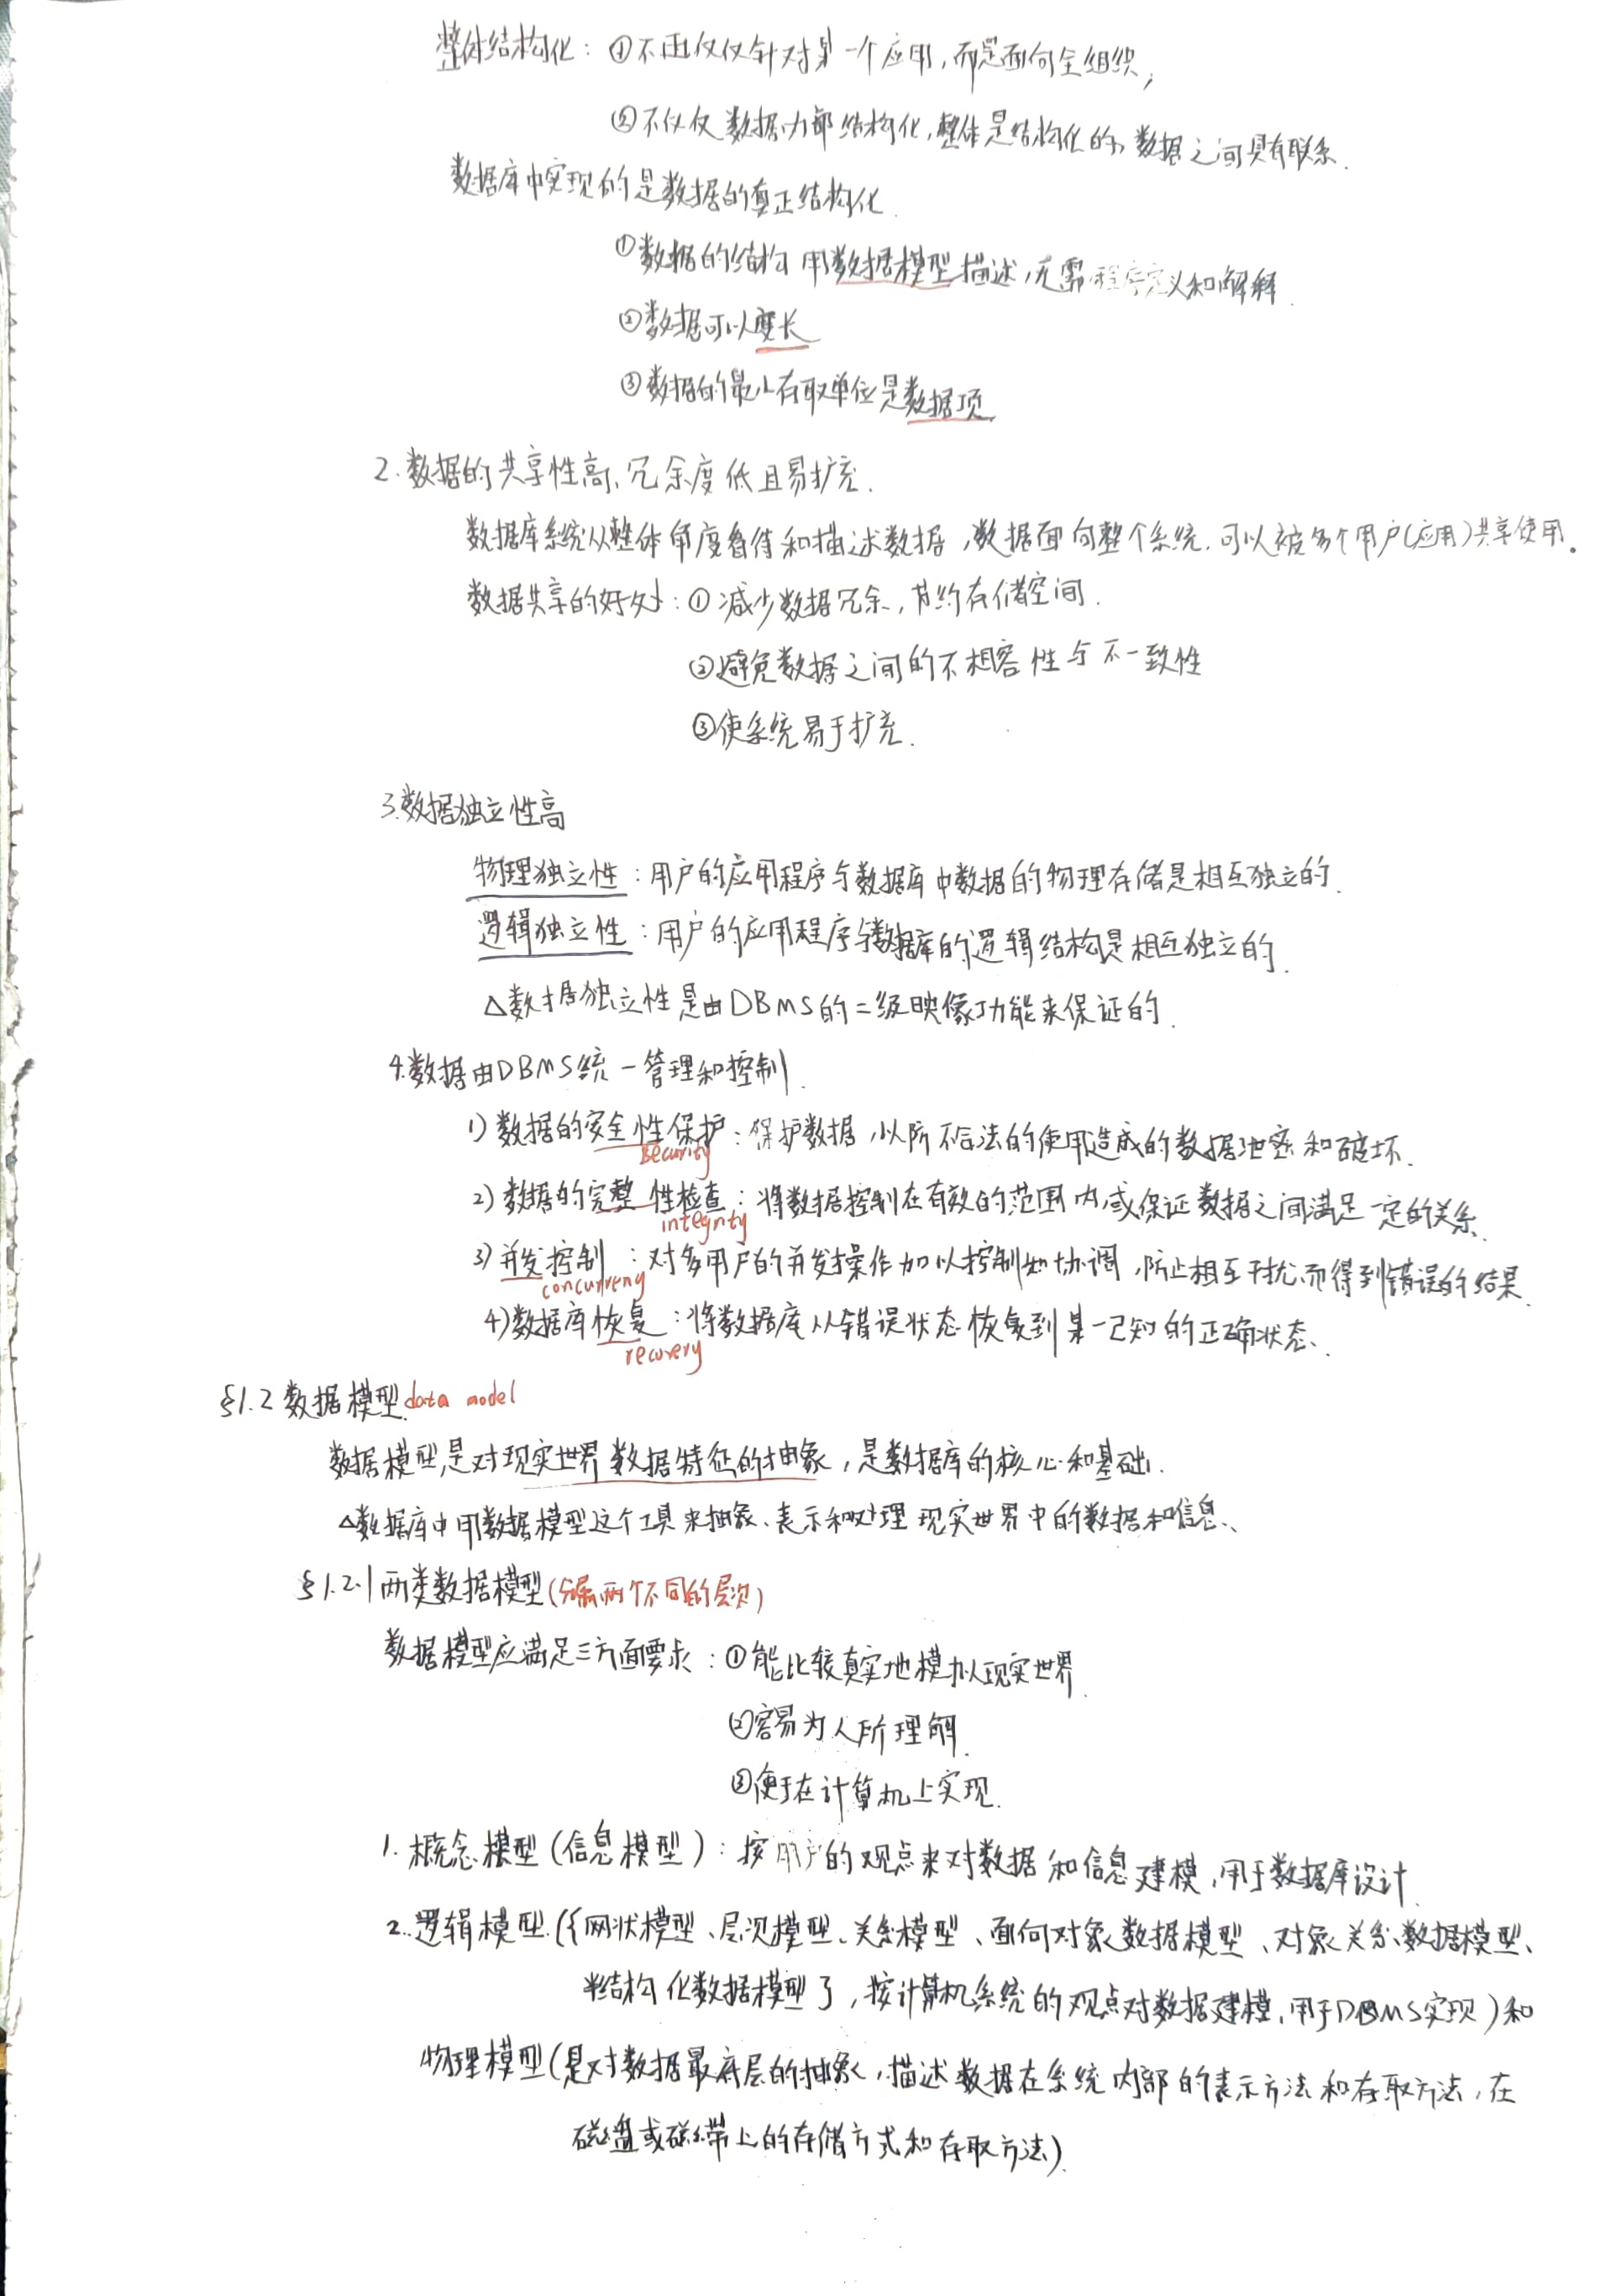 整体结构化：①不再仅仅针对某一个应用，而是面向全组织；
②不仅仅数据内部结构化，整体是结构化的，数据之间具有联系.
数据库中实现的是数据的真正结构化.
①数据的结构用数据模型描述，无需程序定义和解释.
②数据可以变长
③数据的最小存取单位是数据项
2.数据的共享性高、冗余度低且易扩充.
数据库系统从整体角度看待和描述数据，数据面向整个系统，可以被多个用户(应用)共享使用。
数据共享的好处：①减少数据冗余，节约存储空间.
②避免数据之间的不相容性与不一致性
③使系统易于扩充.
3.数据独立性高
物理独立性：用户的应用程序与数据库中数据的物理存储是相互独立的.
逻辑独立性：用户的应用程序与数据库的逻辑结构是相互独立的.
△数据独立性是由DBMS的二级映像功能来保证的.
4.数据由DBMS统一管理和控制.
1)数据的安全性保护：保护数据，以防不合法的使用造成的数据泄密和破坏.
security
2)数据的完整性检查：将数据控制在有效的范围内，或保证数据之间满足一定的关系.
integrity
3)并发控制：对多用户的并发操作加以控制和协调，防止相互干扰而得到错误的结果.
concurreny
4)数据库恢复：将数据库从错误状态恢复到某一已知的正确状态.
recovery
§1.2 数据模型. data model
数据模型是对现实世界数据特征的抽象，是数据库的核心和基础.
△数据库中用数据模型这个工具来抽象、表示和处理现实世界中的数据和信息.
§1.2.1 两类数据模型(分属两个不同的层次)
数据模型应满足三方面要求：①能比较真实地模拟现实世界.
②容易为人所理解.
③便于在计算机上实现.
1.概念模型(信息模型)：按用户的观点来对数据和信息建模，用于数据库设计.
2.逻辑模型({网状模型、层次模型、关系模型、面向对象数据模型、对象关系数据模型、
半结构化数据模型}，按计算机系统的观点对数据建模，用于DBMS实现)和
物理模型(是对数据最底层的抽象，描述数据在系统内部的表示方法和存取方法，在
磁盘或磁带上的存储方式和存取方法).